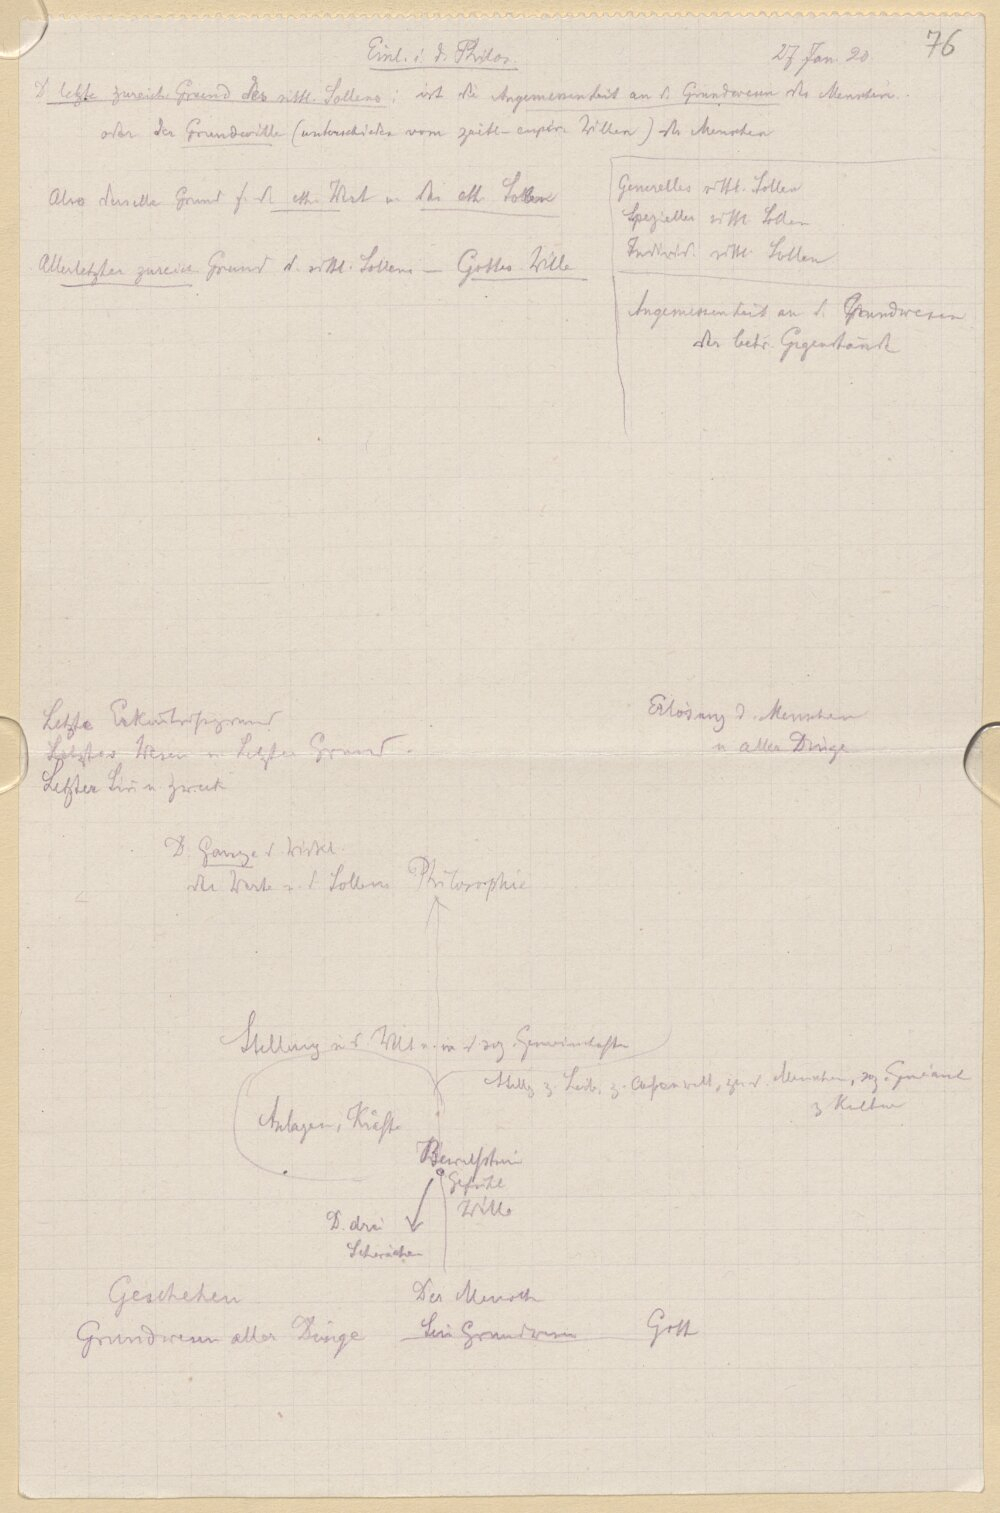 76
Einl. i. d. Philos.
27 Jan. 20.
D. letzte zureich. Grund des sittl. Sollens: ist die Angemessenheit an d. Grundwesen des Menschen.
oder der Grundwille (unterschieden vom zeitl-empir. Willen) des Menschen
Also derselbe Grund f. d. eth. Wert u. das eth. Sollen
Allerletzter zureich. Grund d. sittl. Sollens — Gottes Wille
Generelles sittl. Sollen
Spezielles sittl. Sollen
Individ. sittl. Sollen
Angemessenheit an d. Grundwesen
der betr. Gegenstände
Letzte Erkenntnisgrund
Letztes Wesen u. Letzter Grund.
Letzter Sinn u. Zweck
Erlösung d. Menschen
u aller Dinge
D. Ganze d Wirkl.
der Werte u. d. Sollens Philosophie
Stellung in d Welt u. in d soz. Gemeinschaften
Stellg z. Leib, z. Außenwelt, zu d. Menschen, soz.
z Kultur
Anlagen, Kräfte
Bewußtsein
Gefühl
Wille
D. drei
Geschehen
Der Mensch
Grundwesen aller Dinge
Sein Grundwesen
Gott